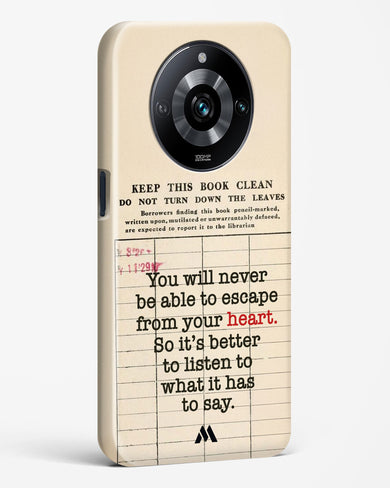 100MP
KEEP THIS BOOK CLEAN
DO NOT TURN DOWN THE LEAVES
Borrowers finding this book pencil-marked,
written upon, mutilated or unwarrantably defaced,
are expected to report it to the librarian
You will never
be able to escape
from your heart.
So it's better
to listen to
what it has
to say.